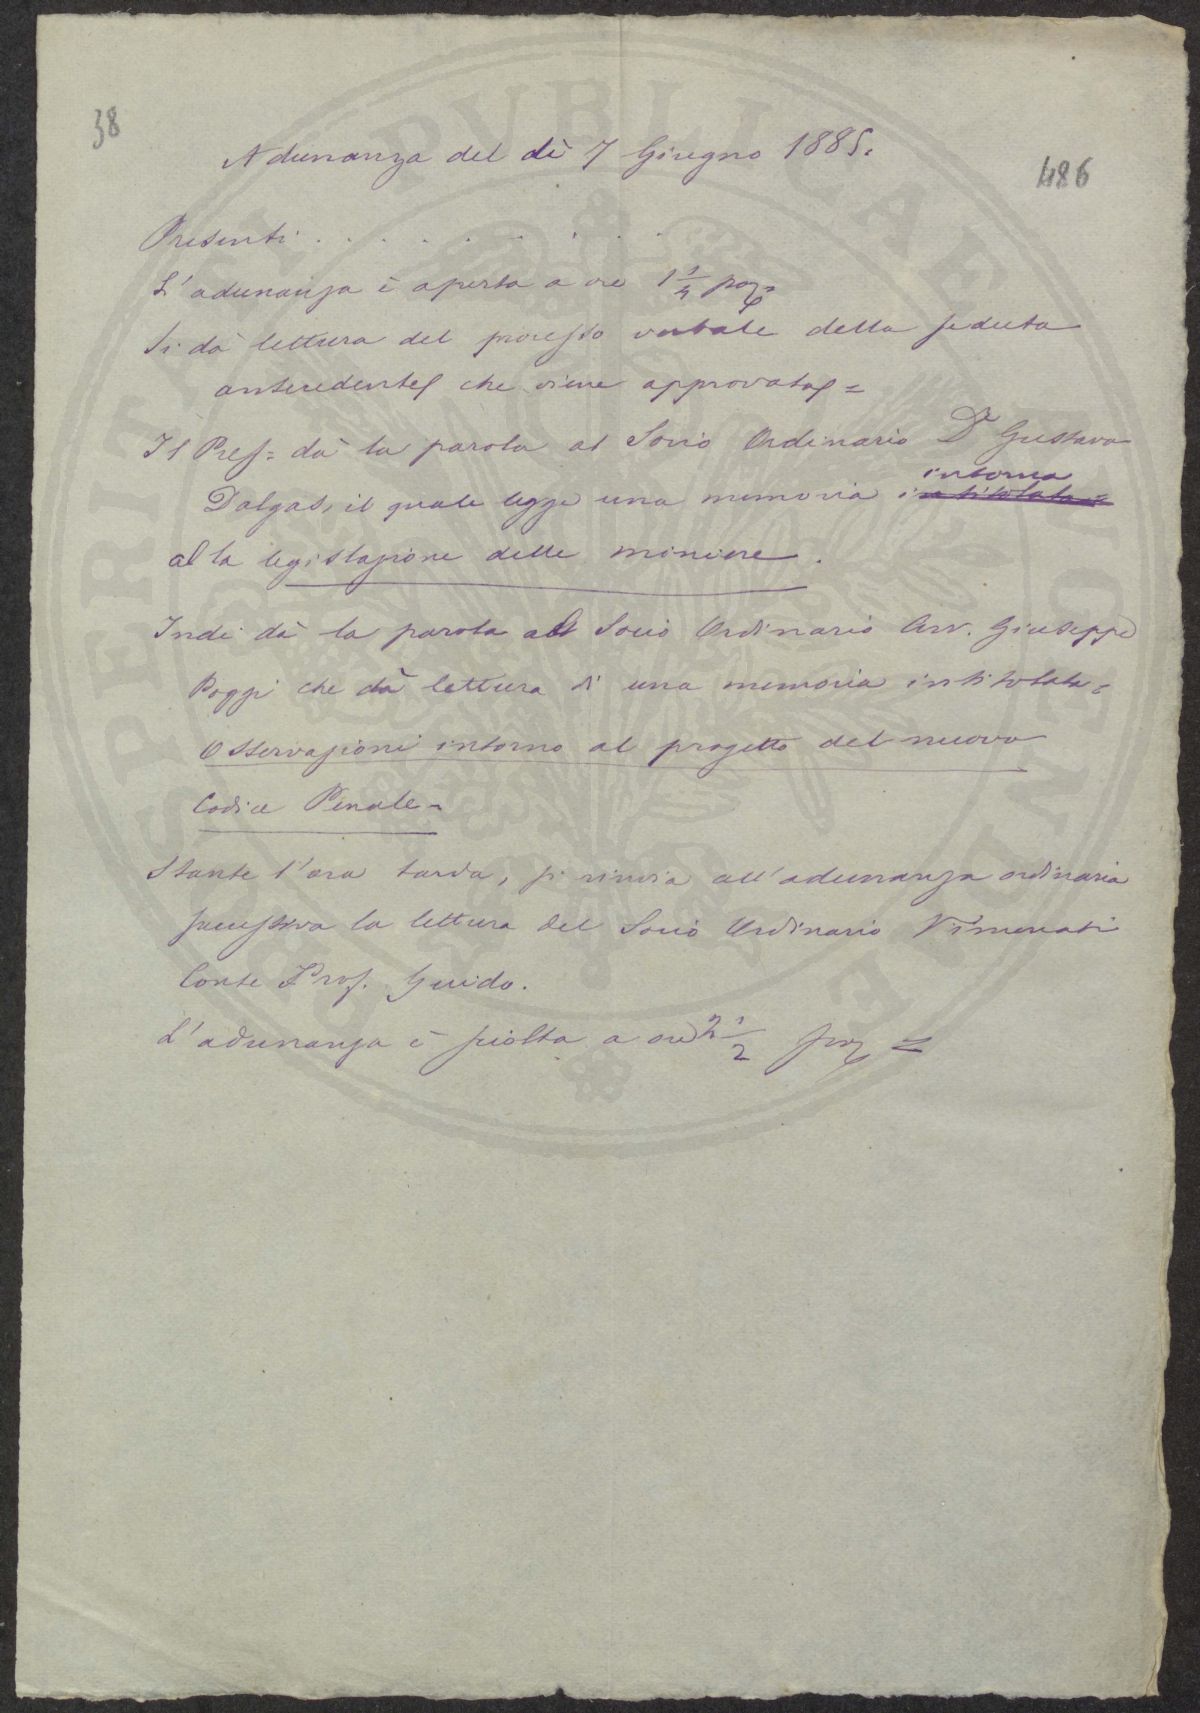 38
486
Adunanza del dì 7 Giugno 1885.
Presenti . . . . . . . . .
L'adunanza è aperta a ore 1 1/4 pom=
Si dà lettura del processo verbale della seduta
antecedente, che viene approvato, =
Il Pres= dà la parola al Socio Ordinario Dr Gustavo
Dalgas, il quale legge una memoria intitolata= intorno
alla legislazione delle miniere.
Indi dà la parola al Socio Ordinario Avv. Giuseppe
Poggi che dà lettura di una memoria intitolata=
Osservazioni intorno al progetto del nuovo
Codice Penale=
Stante l'ora tarda, si rinvia all'adunanza ordinaria
successiva la lettura del Socio Ordinario Vimercati
Conte Prof. Guido.
L'adunanza è sciolta a ore 2 1/2 pom =
PROSPERITATI PVBLICAE AVGENDAE